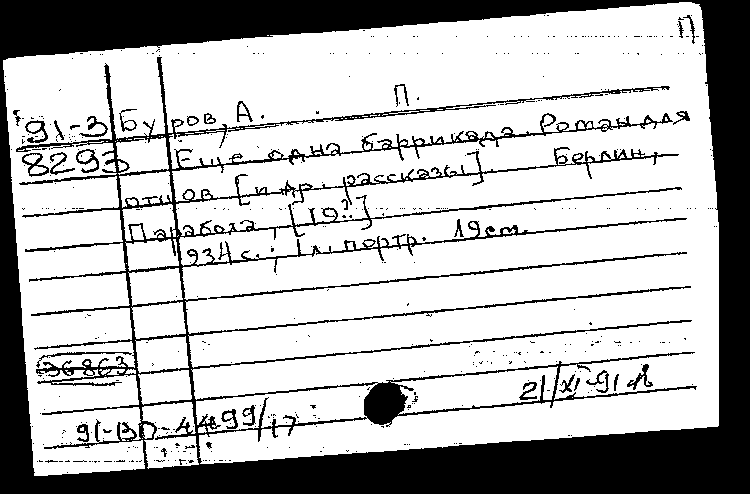 П
П.
91-3 Буров, А.
8293 Еще одна баррикада. Роман для
отцов [и др. рассказы]. Берлин,
Парабола, [19??].
234 с.; 1 л. портр. 19 см.
36863
21/XI-91
91-13П-4499/17